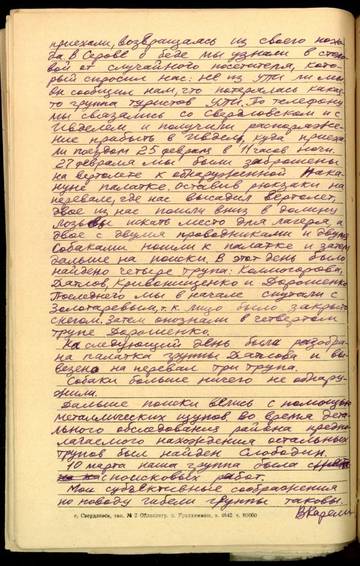 приехали, возвращаясь из своего похо-
да. В Серове о беде мы узнали в столо-
вой от случайного посетителя, кото-
рый спросил нас: не из УПИ ли мы
он сообщил нам, что потерялась какая-
то группа туристов УПИ. По телефону
мы связались со Свердловском и с
Ивделем и получили распоряже-
ние прибыть в Ивдель, куда приеха-
ли поездом 25 февраля в 11 часов ночи.
27 февраля мы были заброшены
на вертолете к обнаруженной нака-
нуне палатке. Оставив рюкзаки на
перевале, где нас высадил вертолет,
двое из нас пошли вниз в долину
Лозьвы искать место для лагеря, а
двое с двумя проводниками и двумя
собаками пошли к палатке и затем
дальше на поиски. В этот день было
найдено четыре трупа: Колмогорова,
Дятлов, Кривонищенко и Дорошенко.
Последнего мы в начале спутали с
Золотаревым, т.к. лицо было закрыто
снегом. Затем опознали в четвертом
трупе Дорошенко.
На следующий день была разобра-
на палатка группы Дятлова и вы-
везено на перевал три трупа.
Собаки больше ничего не обнару-
жили.
Дальше поиски велись с помощью
металлических щупов. Во время дета-
льного обследования района предпо-
лагаемого нахождения остальных
трупов был найден Слободин.
10 марта наша группа была
с поисковых работ.
Мои субъективные соображения
по поводу гибели группы таковы.
ВКарелин
г. Свердловск, тип. № 2 Облполигр.